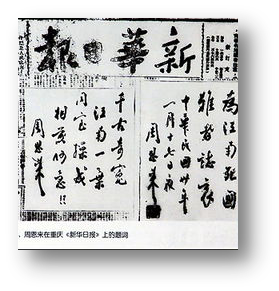 新華日報
為江南死國
難者誌哀
中華民國卅年
一月十七日夜
周恩來
千古奇冤
江南一葉
同室操戈
相煎何急!!
周恩來
、周恩来在重庆《新华日报》上的题词